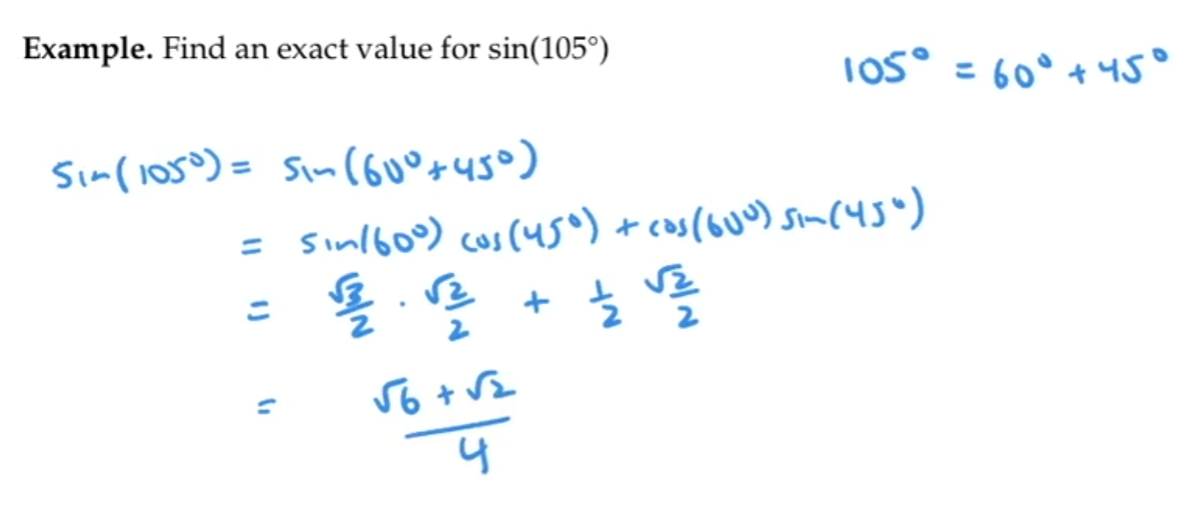 Example. Find an exact value for sin(105°)
105° = 60° + 45°
sin(105°) = sin(60° + 45°)
= sin(60°) cos(45°) + cos(60°) sin(45°)
= √3/2 · √2/2 + 1/2 √2/2
= √6 + √2 / 4